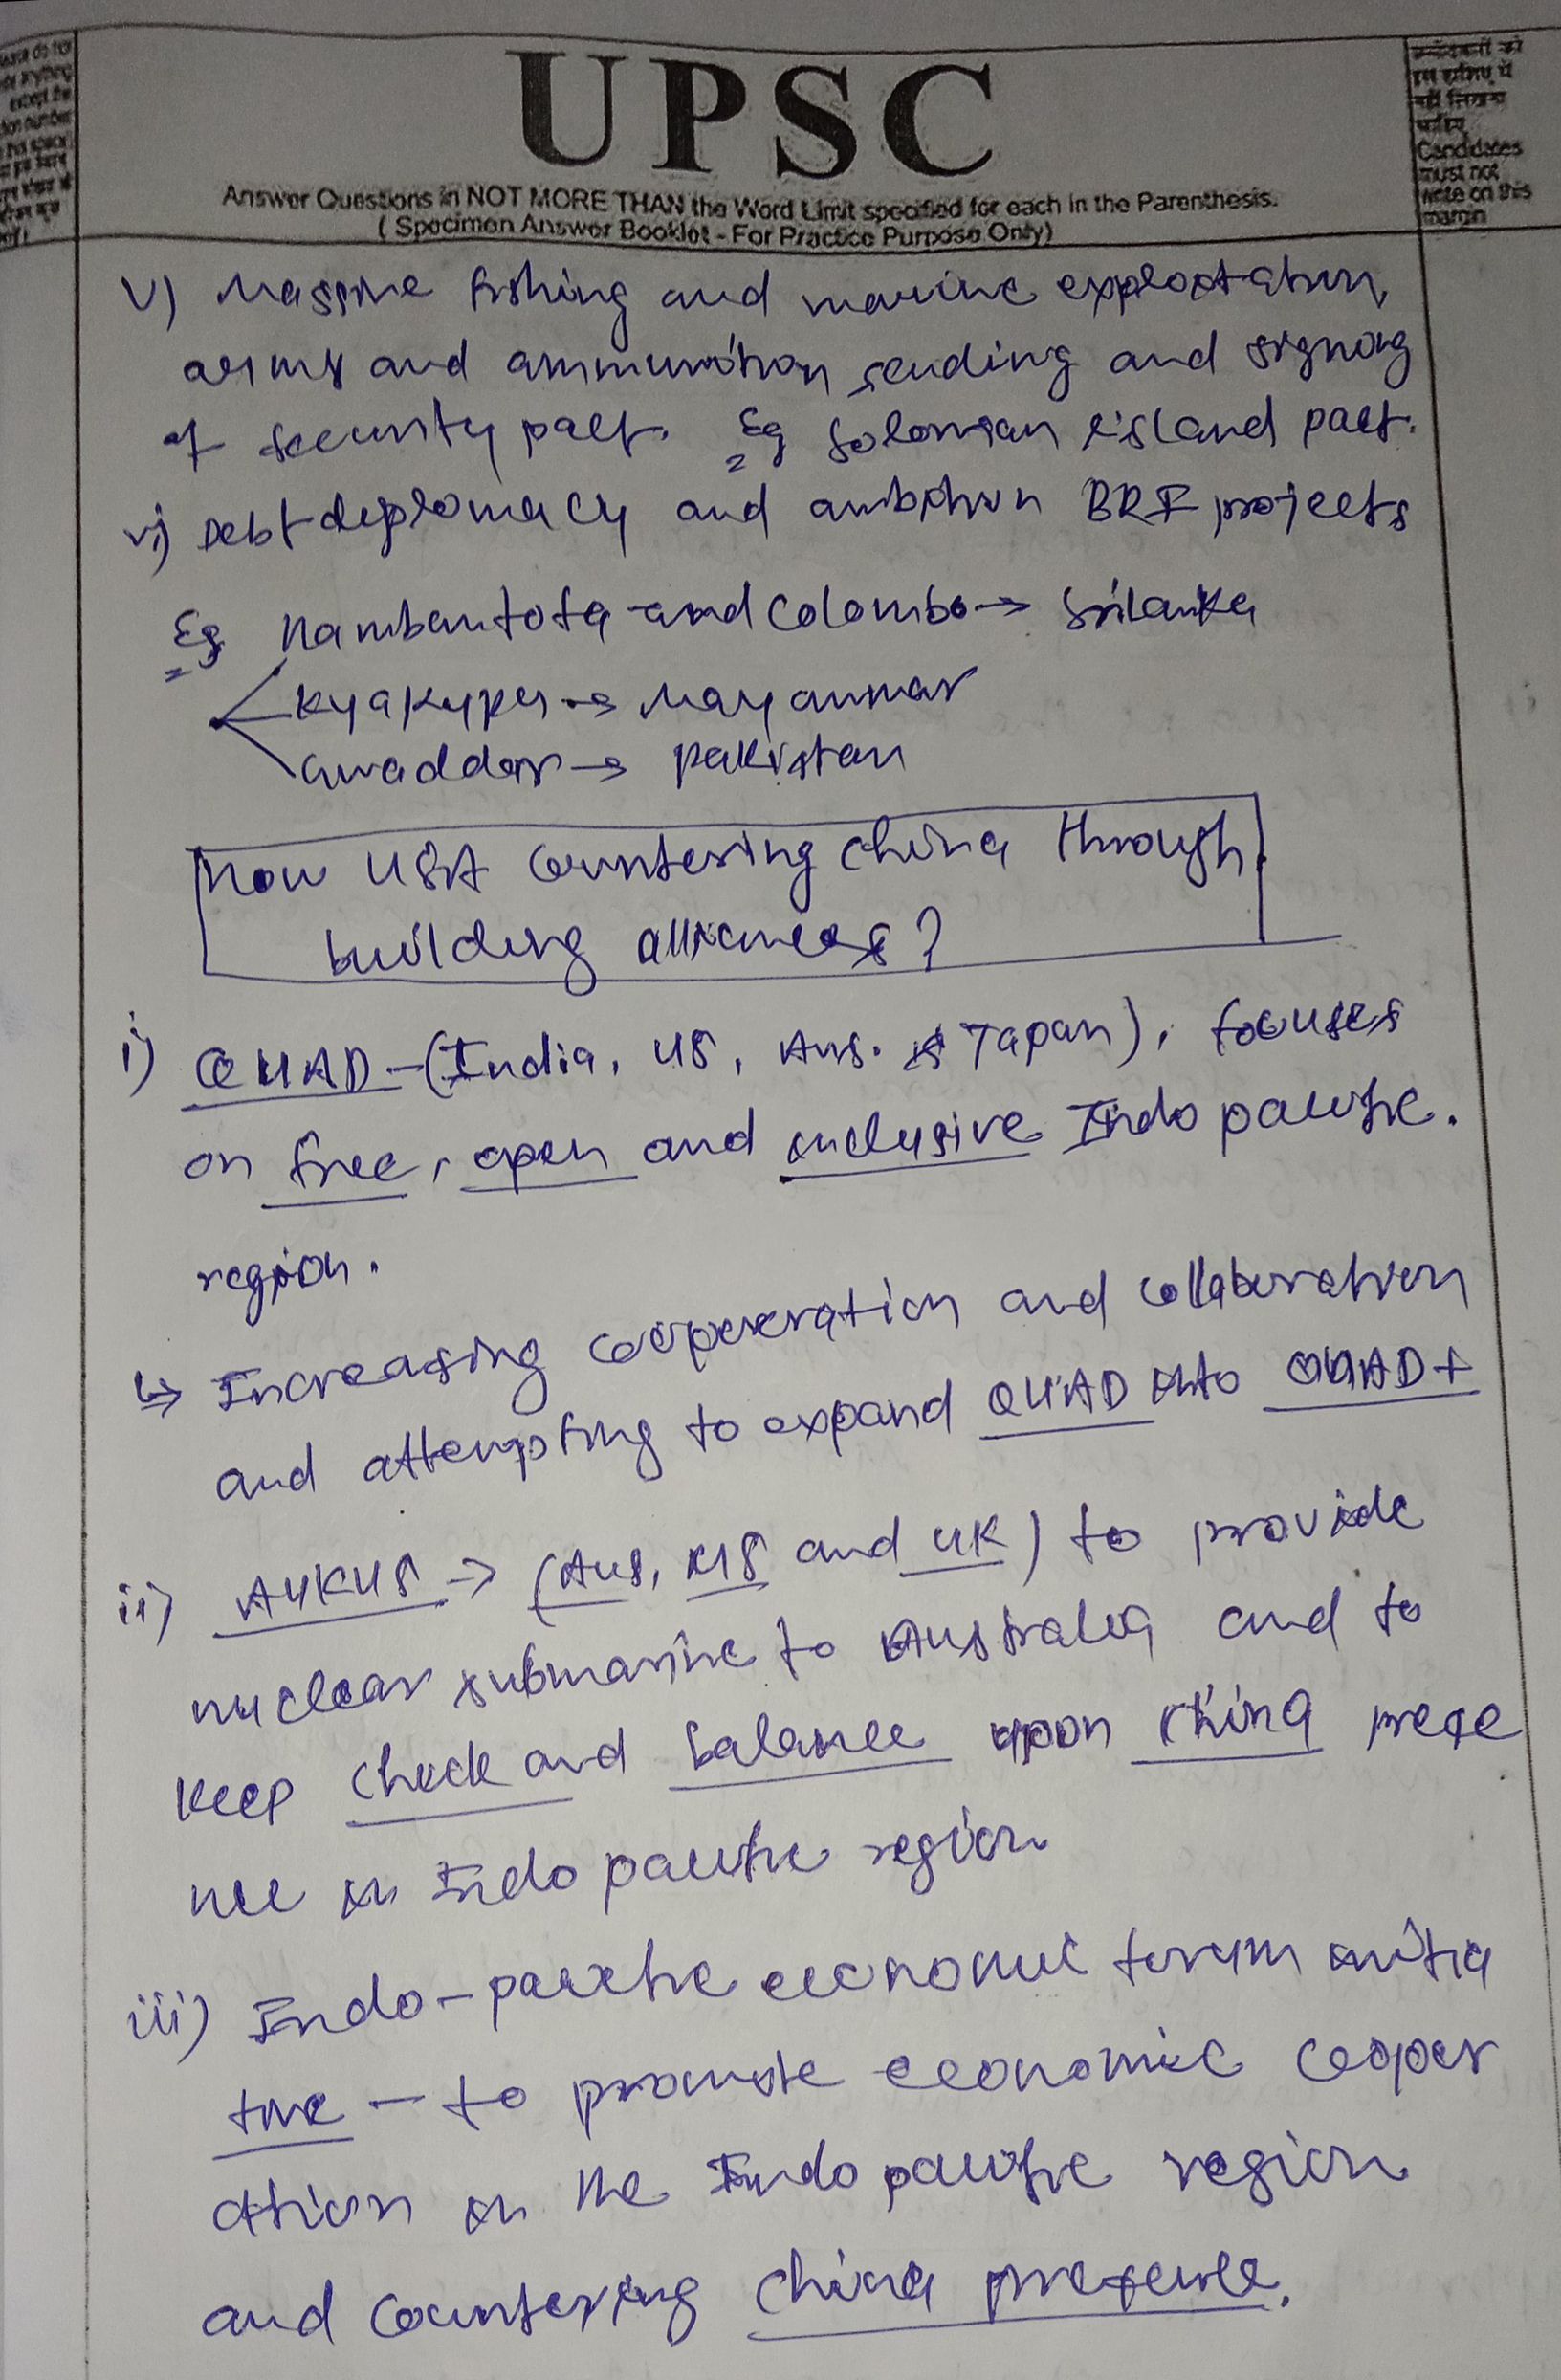 UPSC
Answer Questions in NOT MORE THAN the Word Limit specified for each in the Parenthesis.
( Specimen Answer Booklet - For Practice Purpose Only)
उम्मीदवारों को
इस हाशिए में
नहीं लिखना
चाहिए
Candidates
must not
write on this
margin
v) Massive fishing and marine explortation,
arms and ammunition sending and signing
of security pact. Eg Soloman island pact.
vi) Debt diplomacy and ambition BRI projects
Eg Hambantota and Colombo → Srilanka
Kyakypu → Mayanmar
Gwaddar → Pakistan
How USA Countering China through
building alliances?
i) QUAD - (India, US, Aus. & Japan), focuses
on free, open and inclusive Indo pacific.
region.
↳ Increasing cooperation and collaboration
and attempting to expand QUAD into QUAD+
ii) AUKUS → (Aus, US and UK) to provide
nuclear submarine to Australia and to
keep check and balance upon China prese
nce in Indo pacific region
iii) Indo-pacific economic forum initia
tive - to promote economic cooper
ation in the Indo pacific region
and countering China presence.